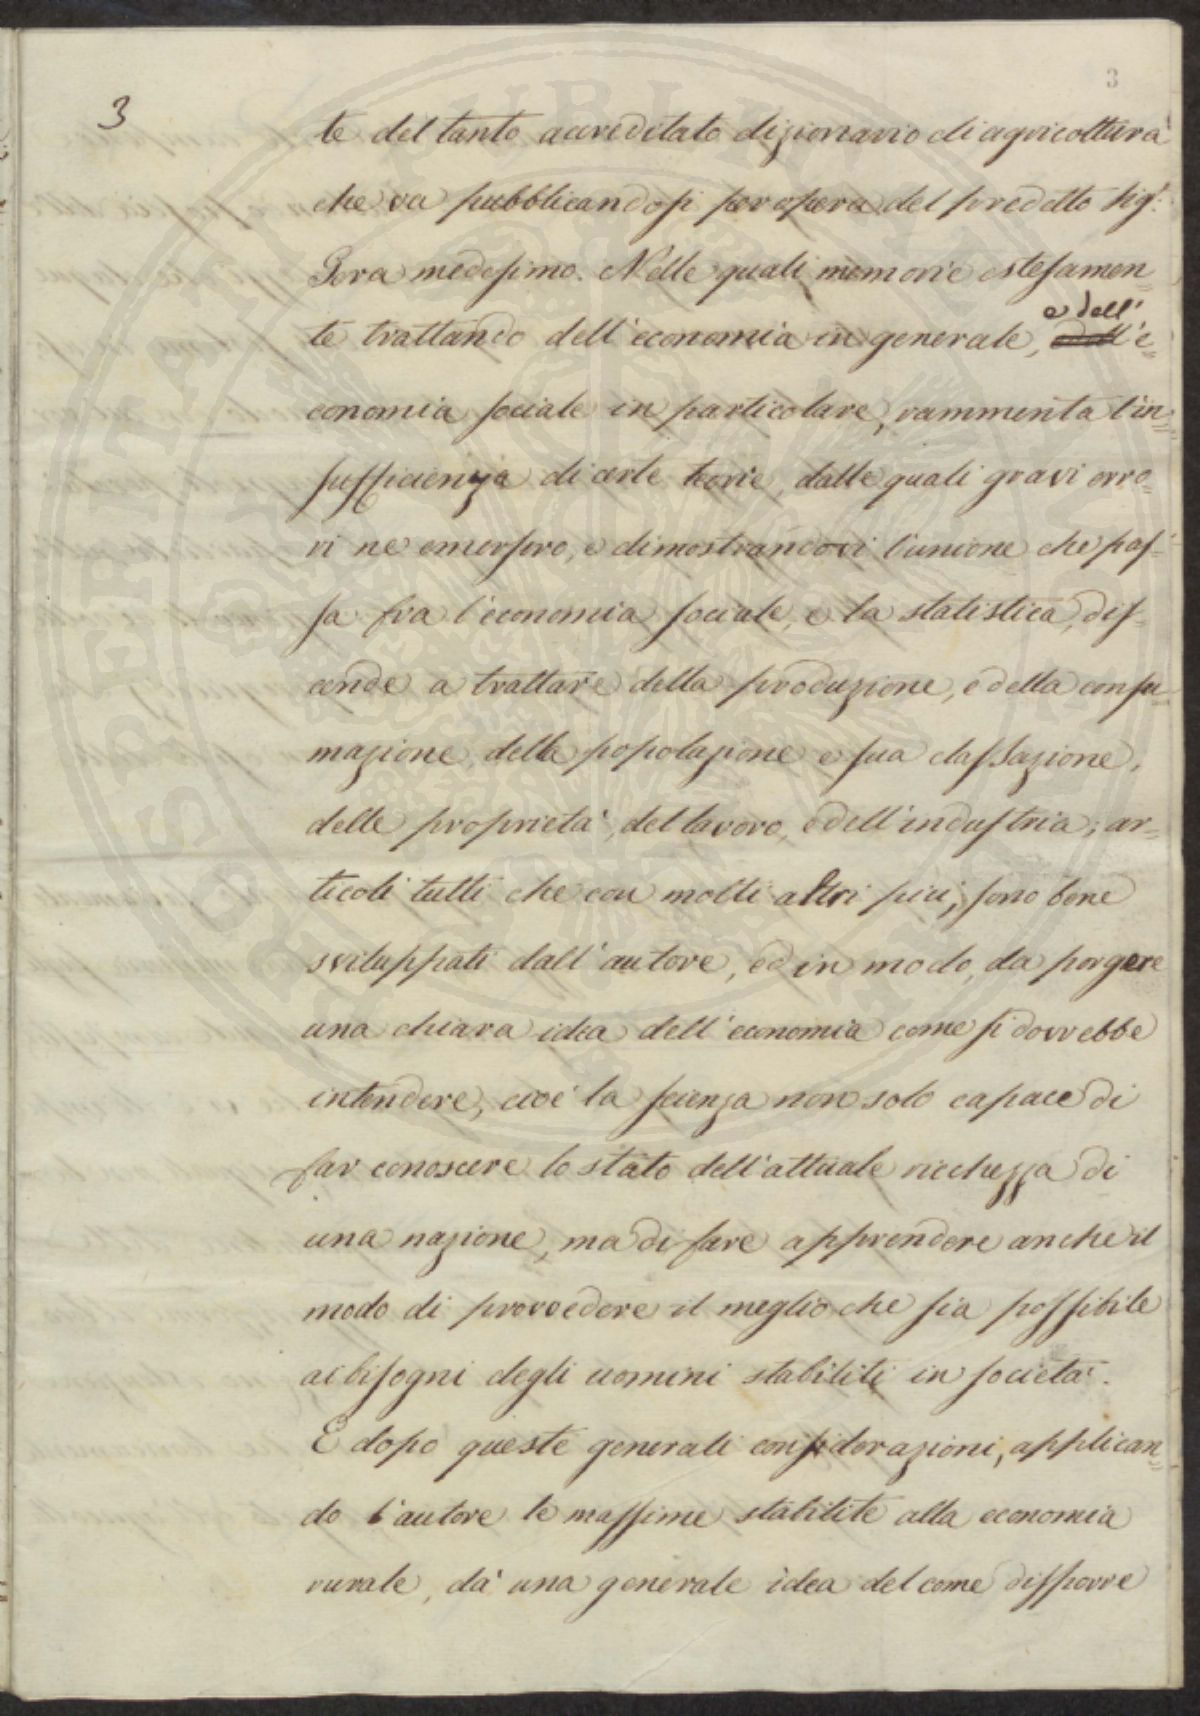 3
3
te del tanto accreditato dizionario di agricoltura
che va pubblicandosi per opera del predetto Sig.r
Gera medesimo. Nelle quali memorie estesamen=
te trattando dell'economia in generale, e dell' e=
conomia sociale in particolare, rammenta l'in=
sufficienza di certe teorie, dalle quali gravi erro=
ri ne emersero, e dimostrandovi l'unione che pas=
sa fra l'economia sociale, e la statistica, dis=
cende a trattare della produzione, e della consu=
mazione, della popolazione e sua classazione,
delle proprietà, del lavoro, e dell'industria; ar=
ticoli tutti che con molti altri più, sono bene
sviluppati dall'autore, ed in modo, da porgere
una chiara idea dell'economia come si dovrebbe
intendere, cioè la scienza non solo capace di
far conoscere lo stato dell'attuale ricchezza di
una nazione, ma di fare apprendere anche il
modo di provvedere il meglio che sia possibile
ai bisogni degli uomini stabiliti in società.
E dopo queste generali considerazioni, applican=
do l'autore le massime stabilite alla economia
rurale, dà una generale idea del come disporre